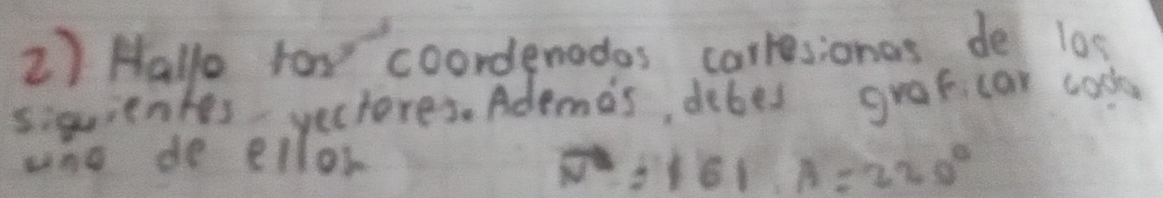 2) Hallo las coordenadas cartesianas de los
siguientes vectores. Además, debes graficar cada
uno de ellos
= 161 A = 220°